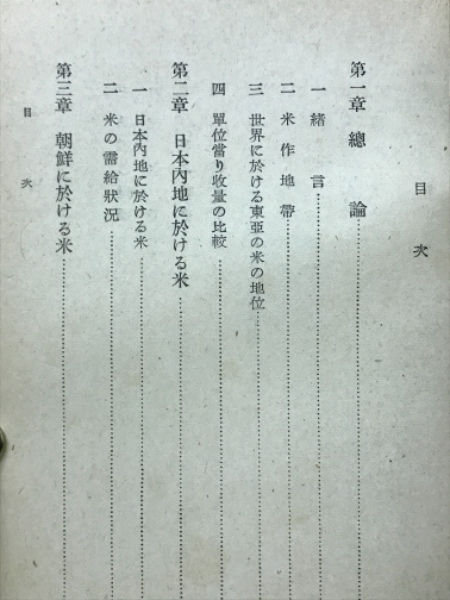 目次
第一章 總論
一 緒言
二 米作地帶
三 世界に於ける東亞の米の地位
四 單位當り收量の比較
第二章 日本內地に於ける米
一 日本內地に於ける米
二 米の需給狀況
第三章 朝鮮に於ける米
目次